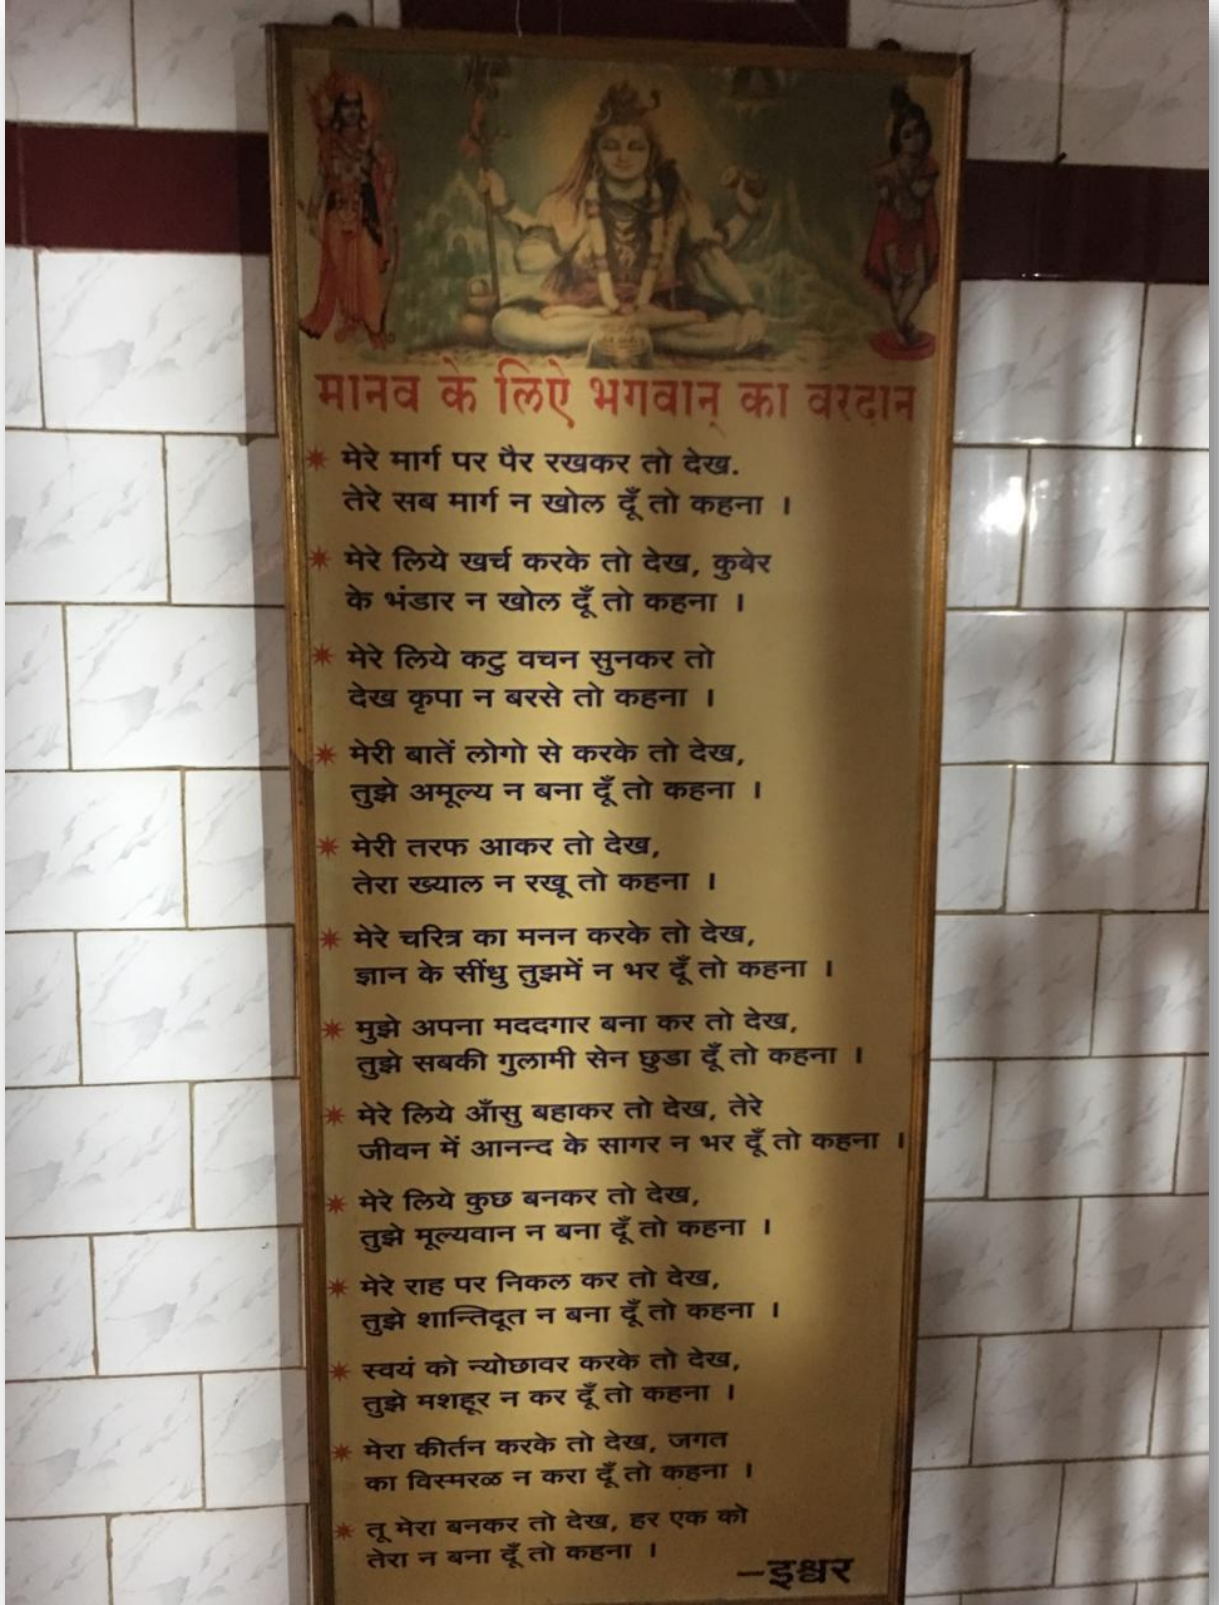 मानव के लिऐ भगवान् का वरदान
मेरे मार्ग पर पैर रखकर तो देख.
तेरे सब मार्ग न खोल दूँ तो कहना ।
मेरे लिये खर्च करके तो देख, कुबेर
के भंडार न खोल दूँ तो कहना ।
मेरे लिये कटु वचन सुनकर तो
देख कृपा न बरसे तो कहना ।
मेरी बातें लोगो से करके तो देख,
तुझे अमूल्य न बना दूँ तो कहना ।
मेरी तरफ आकर तो देख,
तेरा ख्याल न रखू तो कहना ।
मेरे चरित्र का मनन करके तो देख,
ज्ञान के सींधु तुझमें न भर दूँ तो कहना ।
मुझे अपना मददगार बना कर तो देख,
तुझे सबकी गुलामी सेन छुडा दूँ तो कहना ।
मेरे लिये आँसु बहाकर तो देख, तेरे
जीवन में आनन्द के सागर न भर दूँ तो कहना ।
मेरे लिये कुछ बनकर तो देख,
तुझे मूल्यवान न बना दूँ तो कहना ।
मेरे राह पर निकल कर तो देख,
तुझे शान्तिदूत न बना दूँ तो कहना ।
स्वयं को न्योछावर करके तो देख,
तुझे मशहूर न कर दूँ तो कहना ।
मेरा कीर्तन करके तो देख, जगत
का विस्मरळ न करा दूँ तो कहना ।
तू मेरा बनकर तो देख, हर एक को
तेरा न बना दूँ तो कहना ।
–इश्वर